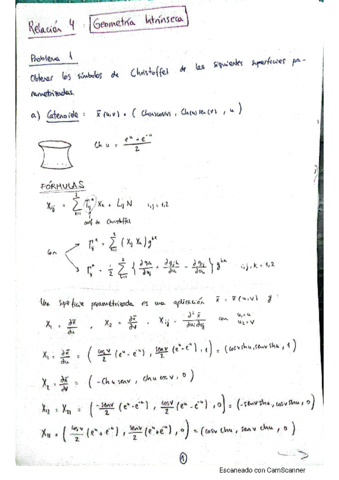 Relación 4: Geometría Intrínseca
Problema 1
Obtener los símbolos de Christoffel de las siguientes superficies pa-
rametrizadas.
a) Catenoide: x̄(u,v) = (Chu cosv, Ch(u) sen(v), u)
Ch u = (e^u + e^-u)/2
FÓRMULAS
X_ij = Σ Γ_ij^k X_k + L_ij N    i,j = 1,2
coef. de Christoffel
con
Γ_ij^k = Σ (X_ij X_l) g^lk
Γ_ij^k = 1/2 Σ { } g^lk    i,j,k = 1,2
Una superficie parametrizada es una aplicación x̄ = x̄(u,v) y
X_1 = ∂x̄/∂u , X_2 = ∂x̄/∂v , X_ij = ∂²x̄/∂u_i∂u_j con u=u_1 v=u_2
X_1 = ∂x̄/∂u = (cosv/2 (e^u - e^-u), senv/2 (e^u - e^-u), 1) = (cosv shu, senv shu, 1)
X_2 = ∂x̄/∂v = (-chu senv, chu cosv, 0)
X_12 = X_21 = (-senv/2 (e^u - e^-u), cosv/2 (e^u - e^-u), 0) = (-senv shu, cosv shu, 0)
X_11 = (cosv/2 (e^u + e^-u), senv/2 (e^u + e^-u), 0) = (cosv chu, senv chu, 0)
1
Escaneado con CamScanner